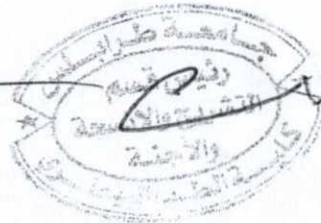 جامعة طرابلس
رئيس قسم
التشريح والأنسجة
والأجنة
كلية الطب البيطري